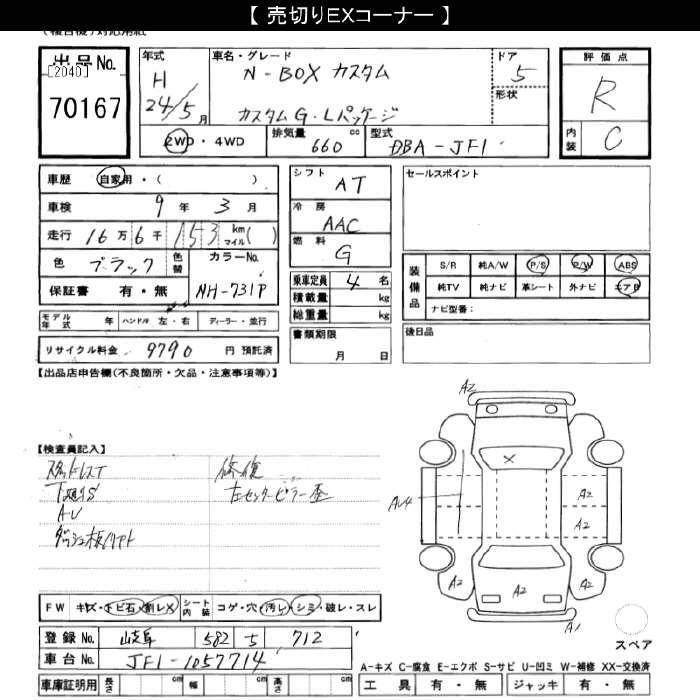 【 売切りEXコーナー 】
(複合機)対応用紙
出品No.
[2040]
70167
年式
H
24/5月
車名・グレード
N-BOX カスタム
カスタム G・Lパッケージ
ドア
5
形状
2WD・4WD
排気量
660 cc
型式
DBA-JF1
評価点
R
内装
C
車歴 自家用・( )
車検 9年 3月
走行 16万6千153 km マイル( )
色 ブラック 色替
カラーNo.
NH-731P
保証書 有・無
モデル年式 年 ハンドル 左・右 ディーラー・並行
リサイクル料金 9790 円 預託済
シフト
AT
冷房
AAC
燃料
G
乗車定員 4 名
積載量 kg
総重量 kg
書類期限
月 日
セールスポイント
装備品
S/R 純A/W P/S P/W ABS
純TV 純ナビ 革シート 外ナビ エアB
ナビ型番:
後日品
【出品店申告欄(不良箇所・欠品・注意事項等)】
【検査員記入】
修復
左センターピラー歪
AU
FW キズ・トビ石・割レX シート内装 コゲ・穴・汚レ・シミ・破レ・スレ
登録No. 岐阜 582 5 712
車台No. JF1-1057714
車庫証明用 長さ cm 幅 cm 高さ cm
A2
X
AU4
A2
A2
A2
A2
A2
A1
スペア
A-キズ C-腐食 E-エクボ S-サビ U-凹ミ W-補修 XX-交換済
工具 有・無 ジャッキ 有・無